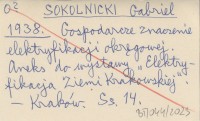 OZ SOKOLNICKI Gabriel
1938. Gospodarcze znaczenie
elektryfikacji okręgowej.
Aneks do wystawy "Elektry-
fikacja Ziemi Krakowskiej".
— Kraków. Ss. 14.